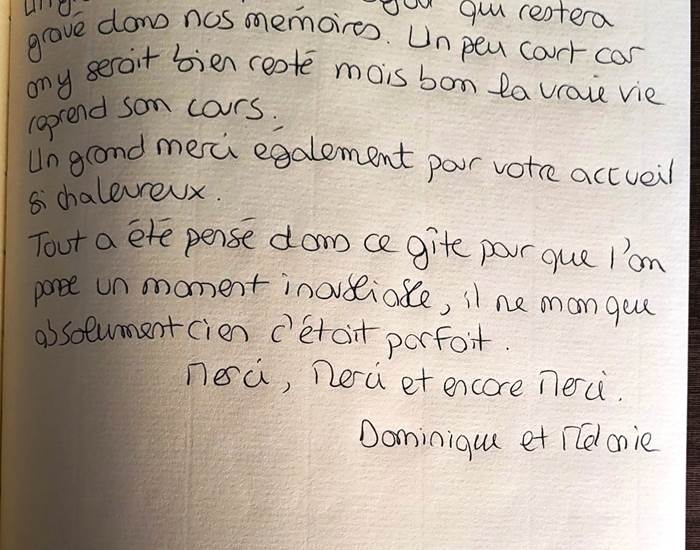 qui restera
gravé dans nos mémoires. Un peu court car
on y serait bien resté mais bon la vraie vie
reprend son cours.
Un grand merci également pour votre accueil
si chaleureux.
Tout a été pensé dans ce gîte pour que l'on
passe un moment inoubliable, il ne manque
absolument rien c'était parfait.
Merci, Merci et encore Merci.
Dominique et Mélanie